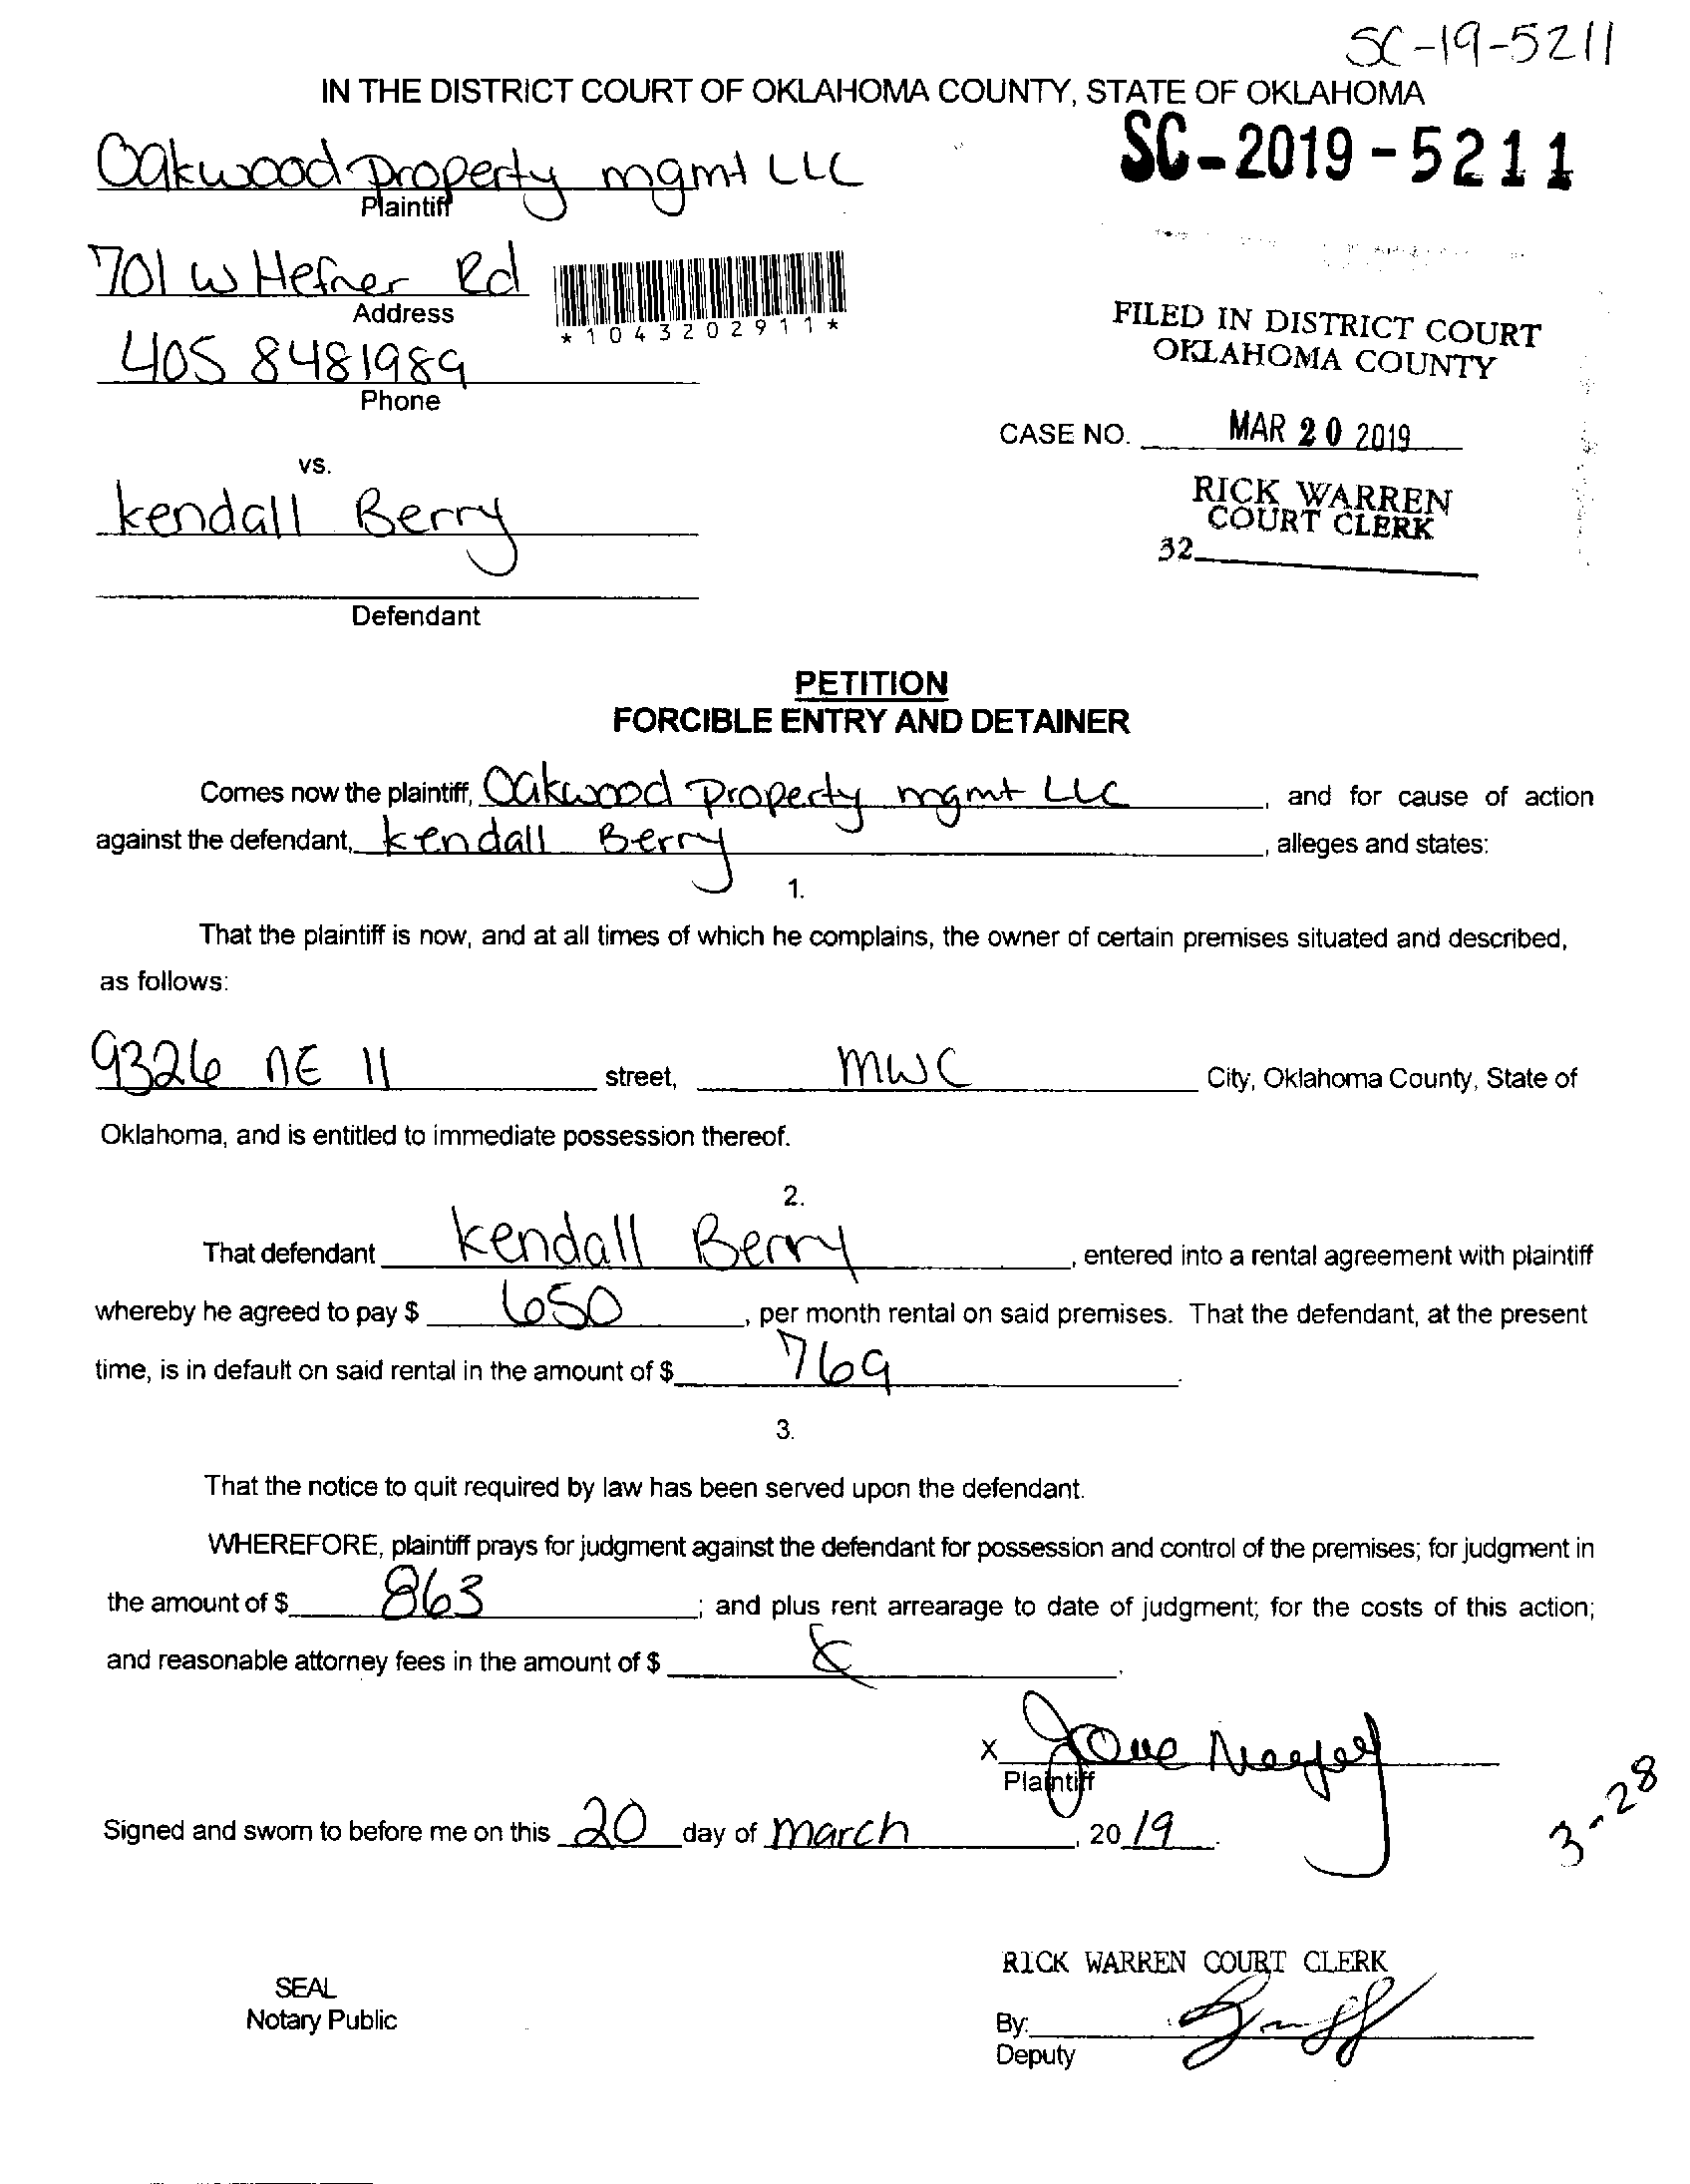 SC-19-5211
IN THE DISTRICT COURT OF OKLAHOMA COUNTY, STATE OF OKLAHOMA
Oakwood property mgmt LLC
Plaintiff
SC-2019-5211
701 W Hefner Rd
Address
*1043202911*
405 8481989
Phone
FILED IN DISTRICT COURT
OKLAHOMA COUNTY
CASE NO. MAR 20 2019
vs.
RICK WARREN
COURT CLERK
32
kendall Berry
Defendant
PETITION
FORCIBLE ENTRY AND DETAINER
Comes now the plaintiff, Oakwood Property mgmt LLC, and for cause of action
against the defendant, kendall Berry, alleges and states:
1.
That the plaintiff is now, and at all times of which he complains, the owner of certain premises situated and described,
as follows:
9326 NE 11 street, MWC City, Oklahoma County, State of
Oklahoma, and is entitled to immediate possession thereof.
2.
That defendant kendall Berry, entered into a rental agreement with plaintiff
whereby he agreed to pay $ 650, per month rental on said premises. That the defendant, at the present
time, is in default on said rental in the amount of $ 769.
3.
That the notice to quit required by law has been served upon the defendant.
WHEREFORE, plaintiff prays for judgment against the defendant for possession and control of the premises; for judgment in
the amount of $ 863; and plus rent arrearage to date of judgment; for the costs of this action;
and reasonable attorney fees in the amount of $.
X
Plaintiff
Signed and sworn to before me on this 20 day of march, 2019.
3-28
RICK WARREN COURT CLERK
SEAL
Notary Public
By:
Deputy